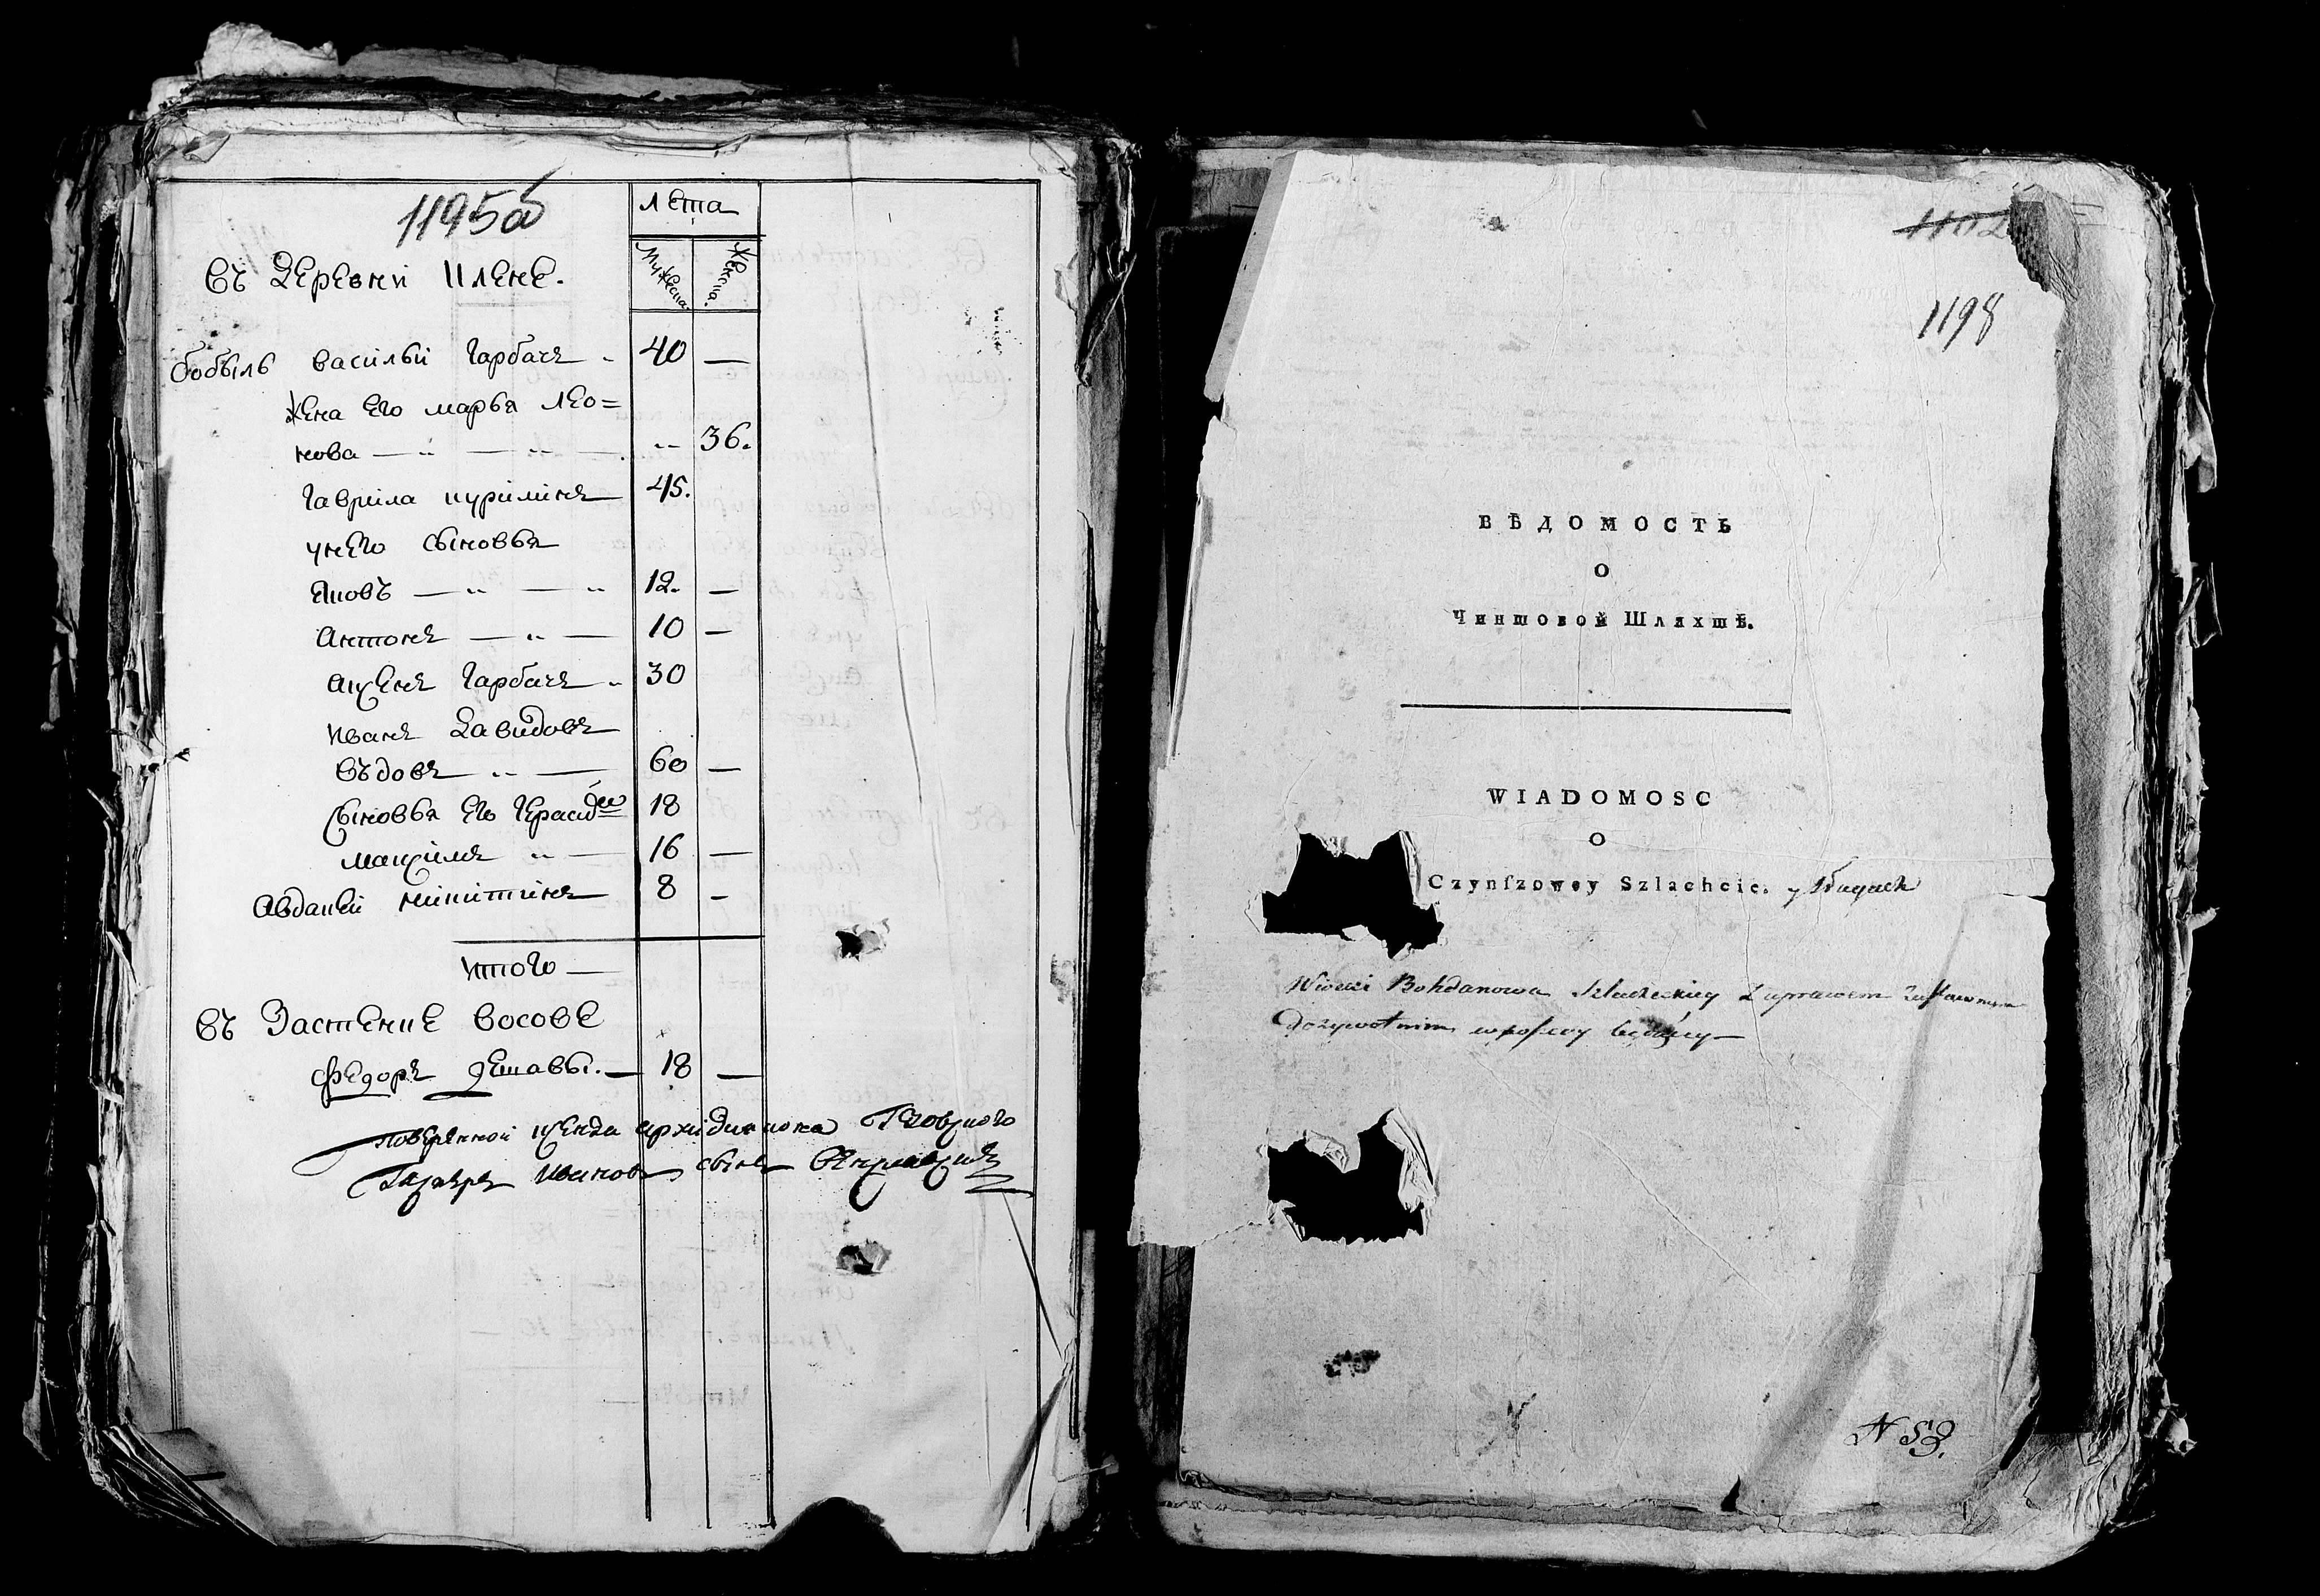 1195об
лета
Мужеска.
Женска.
Въ Деревни Плене.
бобыль василЬй Гарбачъ 40 —
жена Его марья лео=
нова — „ — „ — „ 36.
Гаврила куриминъ 45.
унего сыновья
Яковъ — „ — „ 12. —
антонъ — „ — 10 —
Гарбачъ „ 30
иванъ Давидовъ
въдовъ „ — 60 —
сыновья Его 18
максимъ „ — 16 —
авдакей никитинъ 8 —
итого —
Въ Застенке Восове
федоръ — 18 —
повереннои ксендза архидиакона
Лазаръ ивановъ сынъ
1102
1198
ВѢДОМОСТЬ
О
Чиншовой Шляхтѣ.
WIADOMOSC
O
Czynſzowey Szlachcie. y
Wioski Bohdanowa Szlacheckiey
Dozywotnim
N 53.